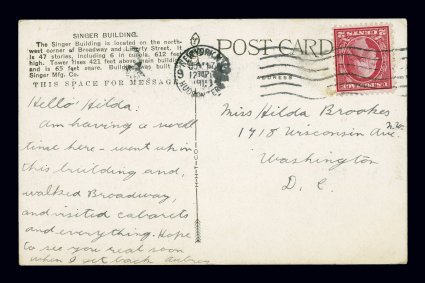 SINGER BUILDING.
The Singer Building is located on the north-
west corner of Broadway and Liberty Street. It
is 47 stories, including 6 in cupola, 612 feet
high. Tower rises 421 feet above main building
and is 65 feet square. Building was built
Singer Mfg. Co.
THIS SPACE FOR MESSAGE
POST CARD
ADDRESS
Hello Hilda:
Am having a swell
time here - went up in
this building and,
walked Broadway,
and visited cabarets
and everything. Hope
to see you real soon
when I get back
Miss Hilda Brookes
1718 Wisconsin Ave.
N.W.
Washington
D. C.